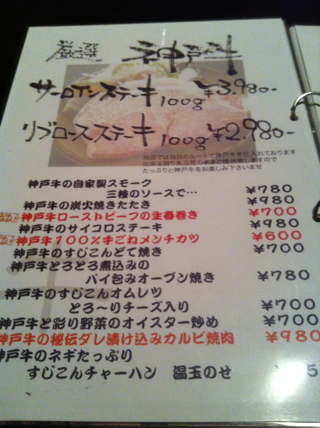 厳選 神戸牛
サーロインステーキ 100g ¥3.980-
リブロースステーキ 100g ¥2.980-
当店では独自のルートで神戸牛を仕入れております
たっぷりと神戸牛をお楽しみ下さいませ
神戸牛の自家製スモーク
三種のソースで… ¥780
神戸牛の炭火焼きたたき ¥980
神戸牛ローストビーフの生春巻き ¥700
神戸牛のサイコロステーキ ¥980
神戸牛100%牛ごねメンチカツ ¥600
神戸牛のすじこんどて焼き ¥700
神戸牛とろとろ煮込みの
パイ包みオーブン焼き ¥780
神戸牛のすじこんオムレツ
とろ〜りチーズ入り ¥700
神戸牛と彩り野菜のオイスター炒め ¥700
神戸牛の秘伝ダレ漬け込みカルビ焼肉 ¥980
神戸牛のネギたっぷり
すじこんチャーハン 温玉のせ